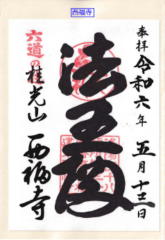 西福寺
奉拝
令和六年
五月十三日
法王殿
六道の
桂光山
西福寺